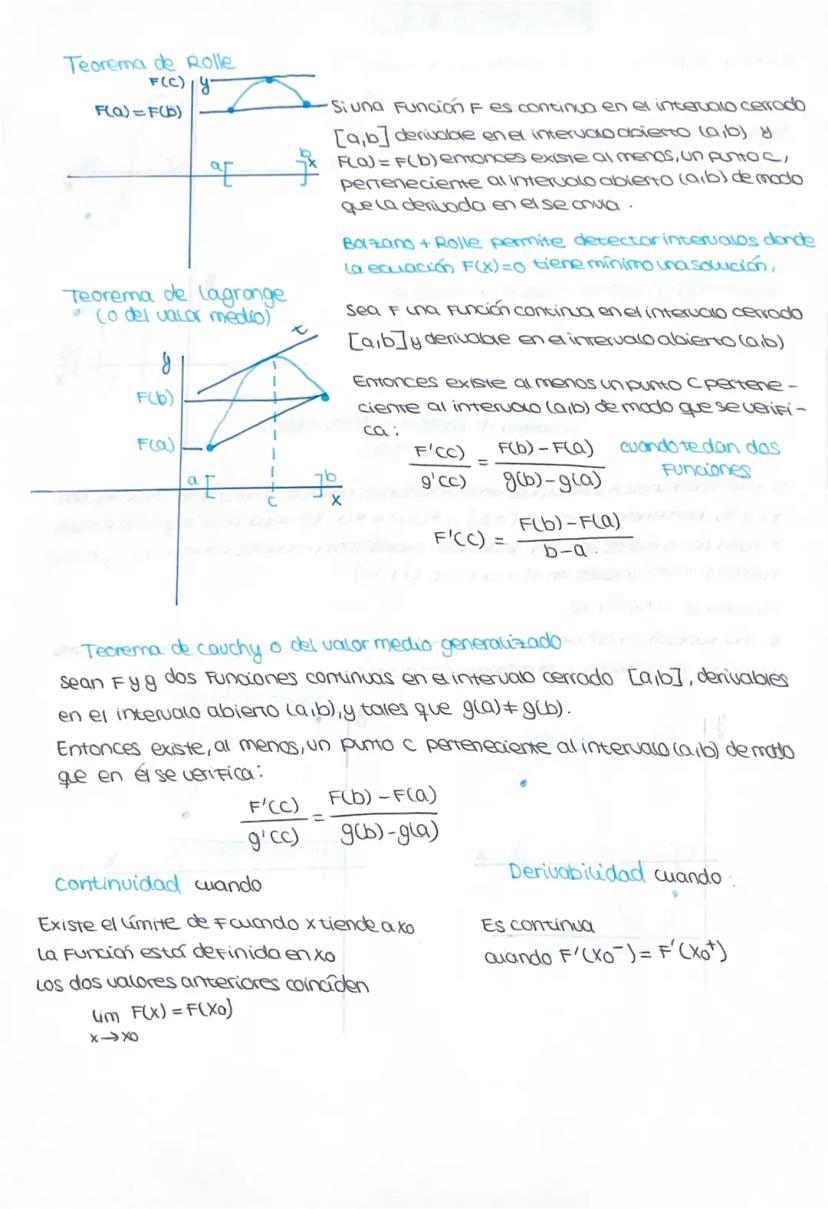 Teorema de Rolle
F(c) y
F(a)=F(b)
a[ ]b x
Si una Función F es continua en el intervalo cerrado
[a,b] derivable en el intervalo abierto (a,b) y
F(a) = F(b) entonces existe al menos, un punto c,
perteneciente al intervalo abierto (a,b) de modo
que la derivada en el se anula.
Bolzano + Rolle permite detectar intervalos donde
la ecuación F(x)=0 tiene mínimo una solución,
Teorema de Lagrange
(o del valor medio)
y
F(b)
F(a)
a[ c ]b x
Sea F una Función continua en el intervalo cerrado
[a,b] y derivable en el intervalo abierto (a,b)
Entonces existe al menos un punto C pertene-
ciente al intervalo (a,b) de modo que se verifi-
ca:
F'(c)/g'(c) = F(b)-F(a)/g(b)-g(a) cuando te dan dos
Funciones
F'(c) = F(b)-F(a)/b-a
Teorema de Cauchy o del valor medio generalizado
Sean F y g dos Funciones continuas en el intervalo cerrado [a,b], derivables
en el intervalo abierto (a,b), y tales que g(a)≠g(b).
Entonces existe, al menos, un punto c perteneciente al intervalo (a,b) de modo
que en él se verifica:
F'(c)/g'(c) = F(b)-F(a)/g(b)-g(a)
Continuidad cuando
Existe el límite de F cuando x tiende a x0
La Función está definida en x0
Los dos valores anteriores coinciden
lim F(x) = F(x0)
x→x0
Derivabilidad cuando:
Es continua
cuando F'(x0⁻) = F'(x0⁺)